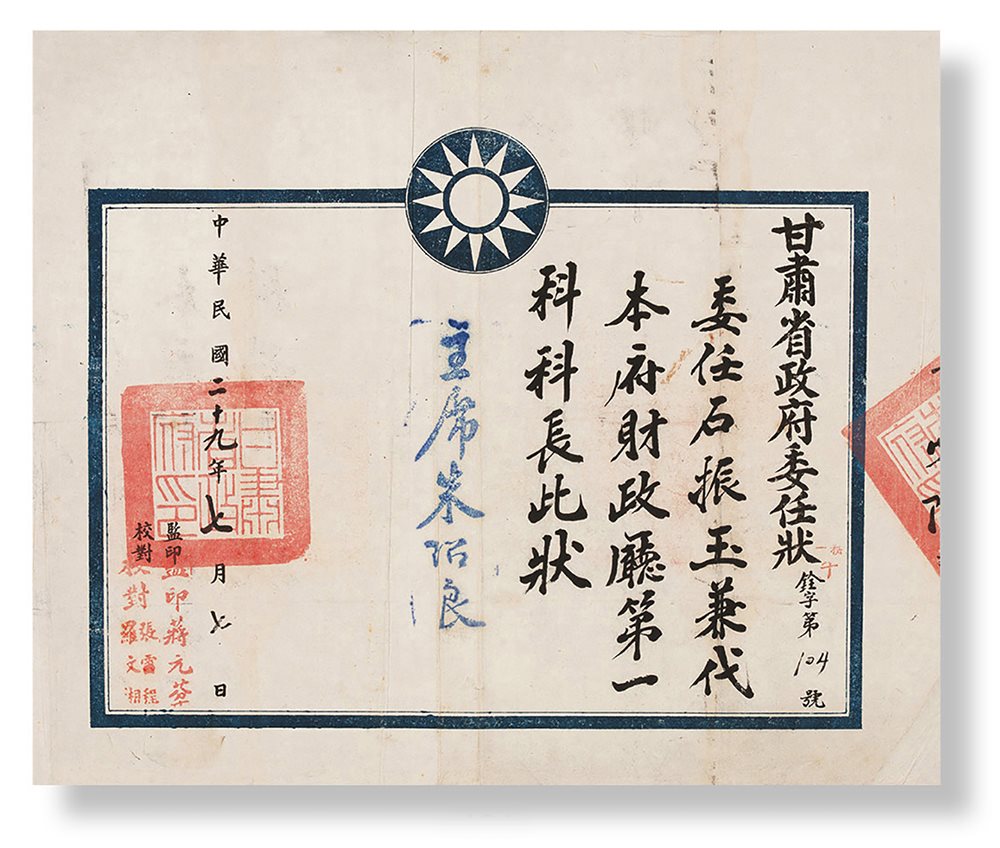 甘肅省政府委任狀
銓字第104號
委任石振玉兼代
本府財政廳第一
科科長此狀
主席朱紹良
中華民國二十九年七月七日
監印
校對
監印蔣元
校對張雷程
羅文湘